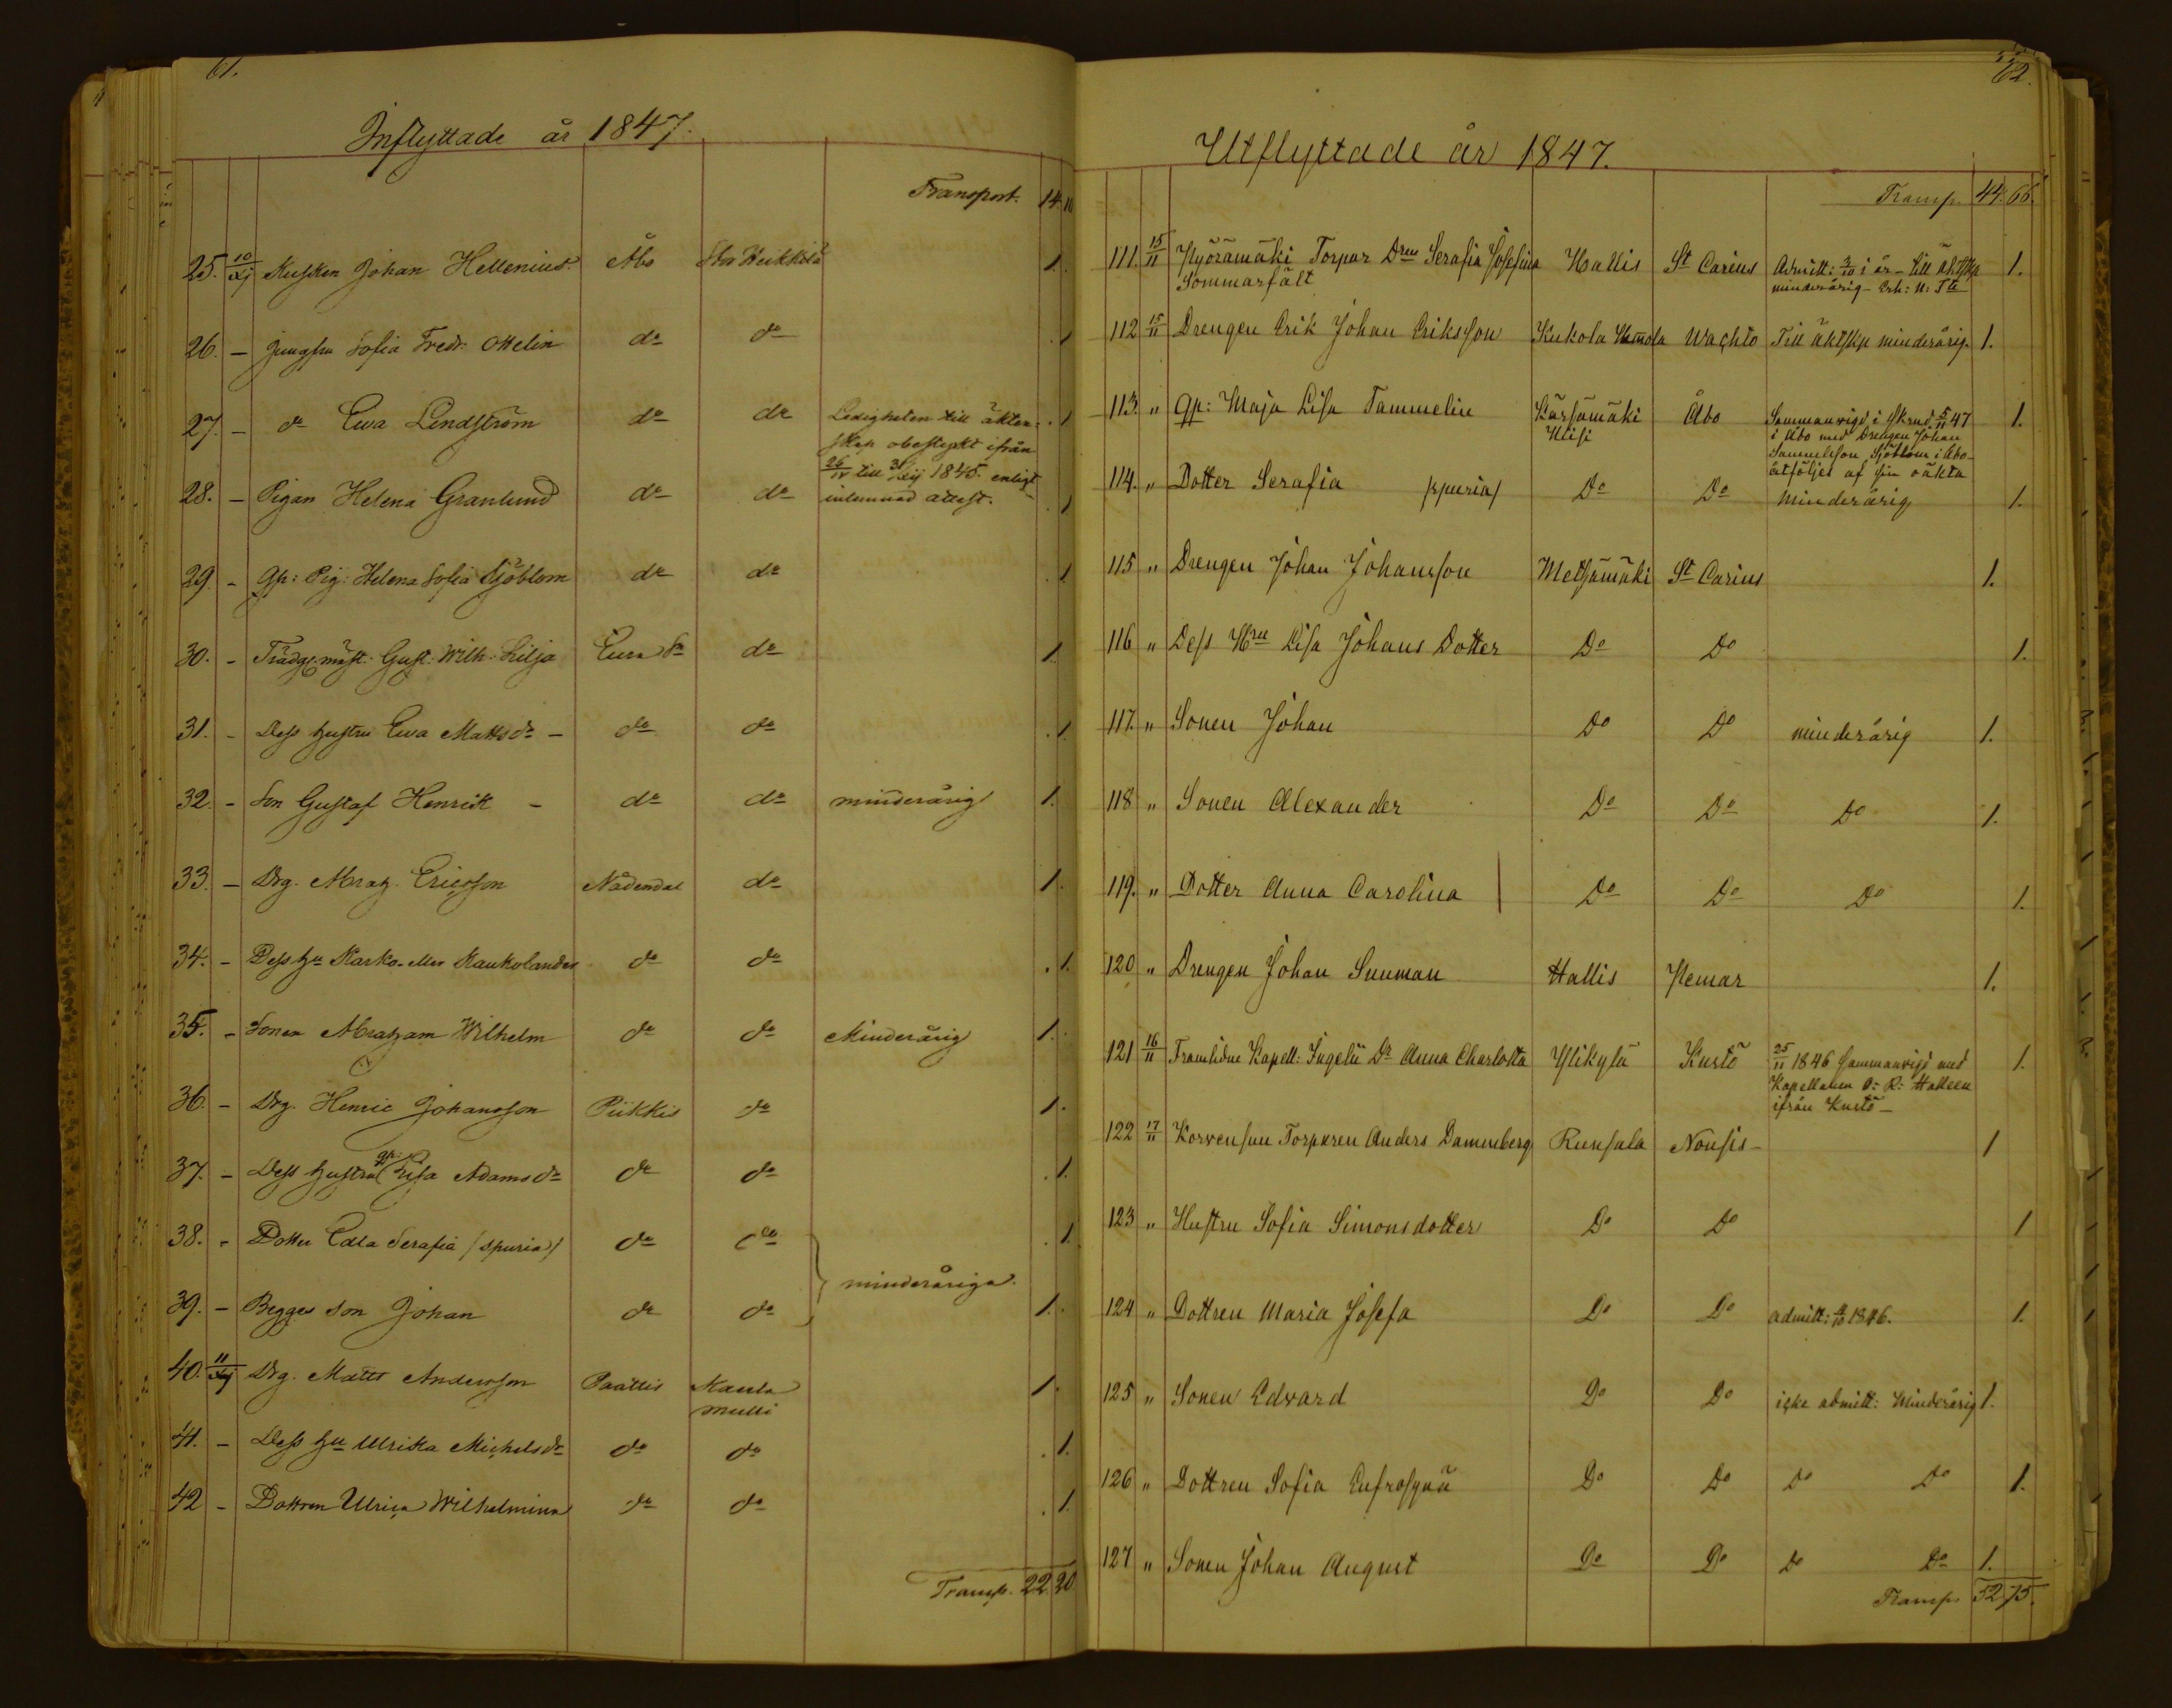 61.
Inflyttade år 1847.
Transport. 14. 10
25. 10/XI Kusken Johan Hellenius. Åbo Stor Heikkilä 1.
26. – Jungfru Sofia Fredr: Ottelin do do 1
27. – do Ewa Lindström do do Ledigheten till äkten- 1
skap obestyrkt ifrån
26/IV till 31/XII 1845. enligt
28. – Pigan Helena Granlund do do inlemnad attest. 1
29. – Gp: Pig: Helena Sofia Sjöblom do do 1
30. – Trädg:mäst: Gust: Wilh. Lilja Eura do 1.
31. – Dess hustru Ewa Mattsdr – do do 1.
32. – Son Gustaf Henrik – do do minderårig 1.
33. – Drg. Abrah. Ericsson Nådendal do 1.
34. – Dess hu Kaukolander do do 1.
35. – Sonen Abraham Wilhelm do do Minderårig 1.
36. – Drg. Henric Johansson Piikkis do 1.
37. – Dess hustru gp: Lisa Adamsdr do do 1.
38. – Dotter Edla Serafia /spuria/ do do 1.
minderåriga.
39. – Begges son Johan do do 1.
40. 11/XI Drg. Matts Andersson Paattis Kaula 1.
mulli
41. – Dess hu Ulrika Michelsdr do do 1.
42 – Dottren Ulrica Wilhelmina do do 1.
Transp. 22. 20
62.
Utflyttade år 1847.
Transp. 44. 66.
111. 15/11 Hyörämäki Torpar Dren Serafia Josefina Hallis St Carius Admitt: 3/10 i år – till äktskp 1.
Sommarfält minderårig –
112 15/11 Drengen Erik Johan Eriksson Kukola Wachto Till äktskp minderårig. 1.
113. " Gp: Maja Lisa Tammelin Kärsämäki Åbo Sammanvigd i Åbo 5/11 47 1.
i Åbo med Drengen Johan
Samuelsson Sjöblom i Åbo –
åtföljes af sin oäkta
114. " Dotter Serafia /spuria/ Do Do Minderårig 1.
115 " Drengen Johan Johansson Metsämäki St Carius 1.
116 " Dess Hru Lisa Johans Dotter Do Do 1.
117. " Sonen Johan Do Do minderårig 1.
118 " Sonen Alexander Do Do Do 1.
119. " Dotter Anna Carolina Do Do Do 1.
120 " Drengen Johan Sunman Hallis Pemar 1.
121 16/11 Framlidne Kapell: Ingelii Dr Anna Charlotta Ylikylä Kustö 25/11 1846 Sammanvigd med 1.
Kapellanen O: R: Halleen
ifrån Kustö –
122 17/11 Korvensuu Torparen Anders Dammberg Runsala Nousis – 1
123 " Hustru Sofia Simonsdotter Do Do 1
124 " Dottren Maria Josefa Do Do admitt: 4/10 1846. 1.
125 " Sonen Edvard Do Do icke admitt: Minderårig 1.
126 " Dottren Sofia Eufrosyna Do Do Do Do 1.
127 " Sonen Johan August Do Do Do Do 1.
Transp. 52 75.